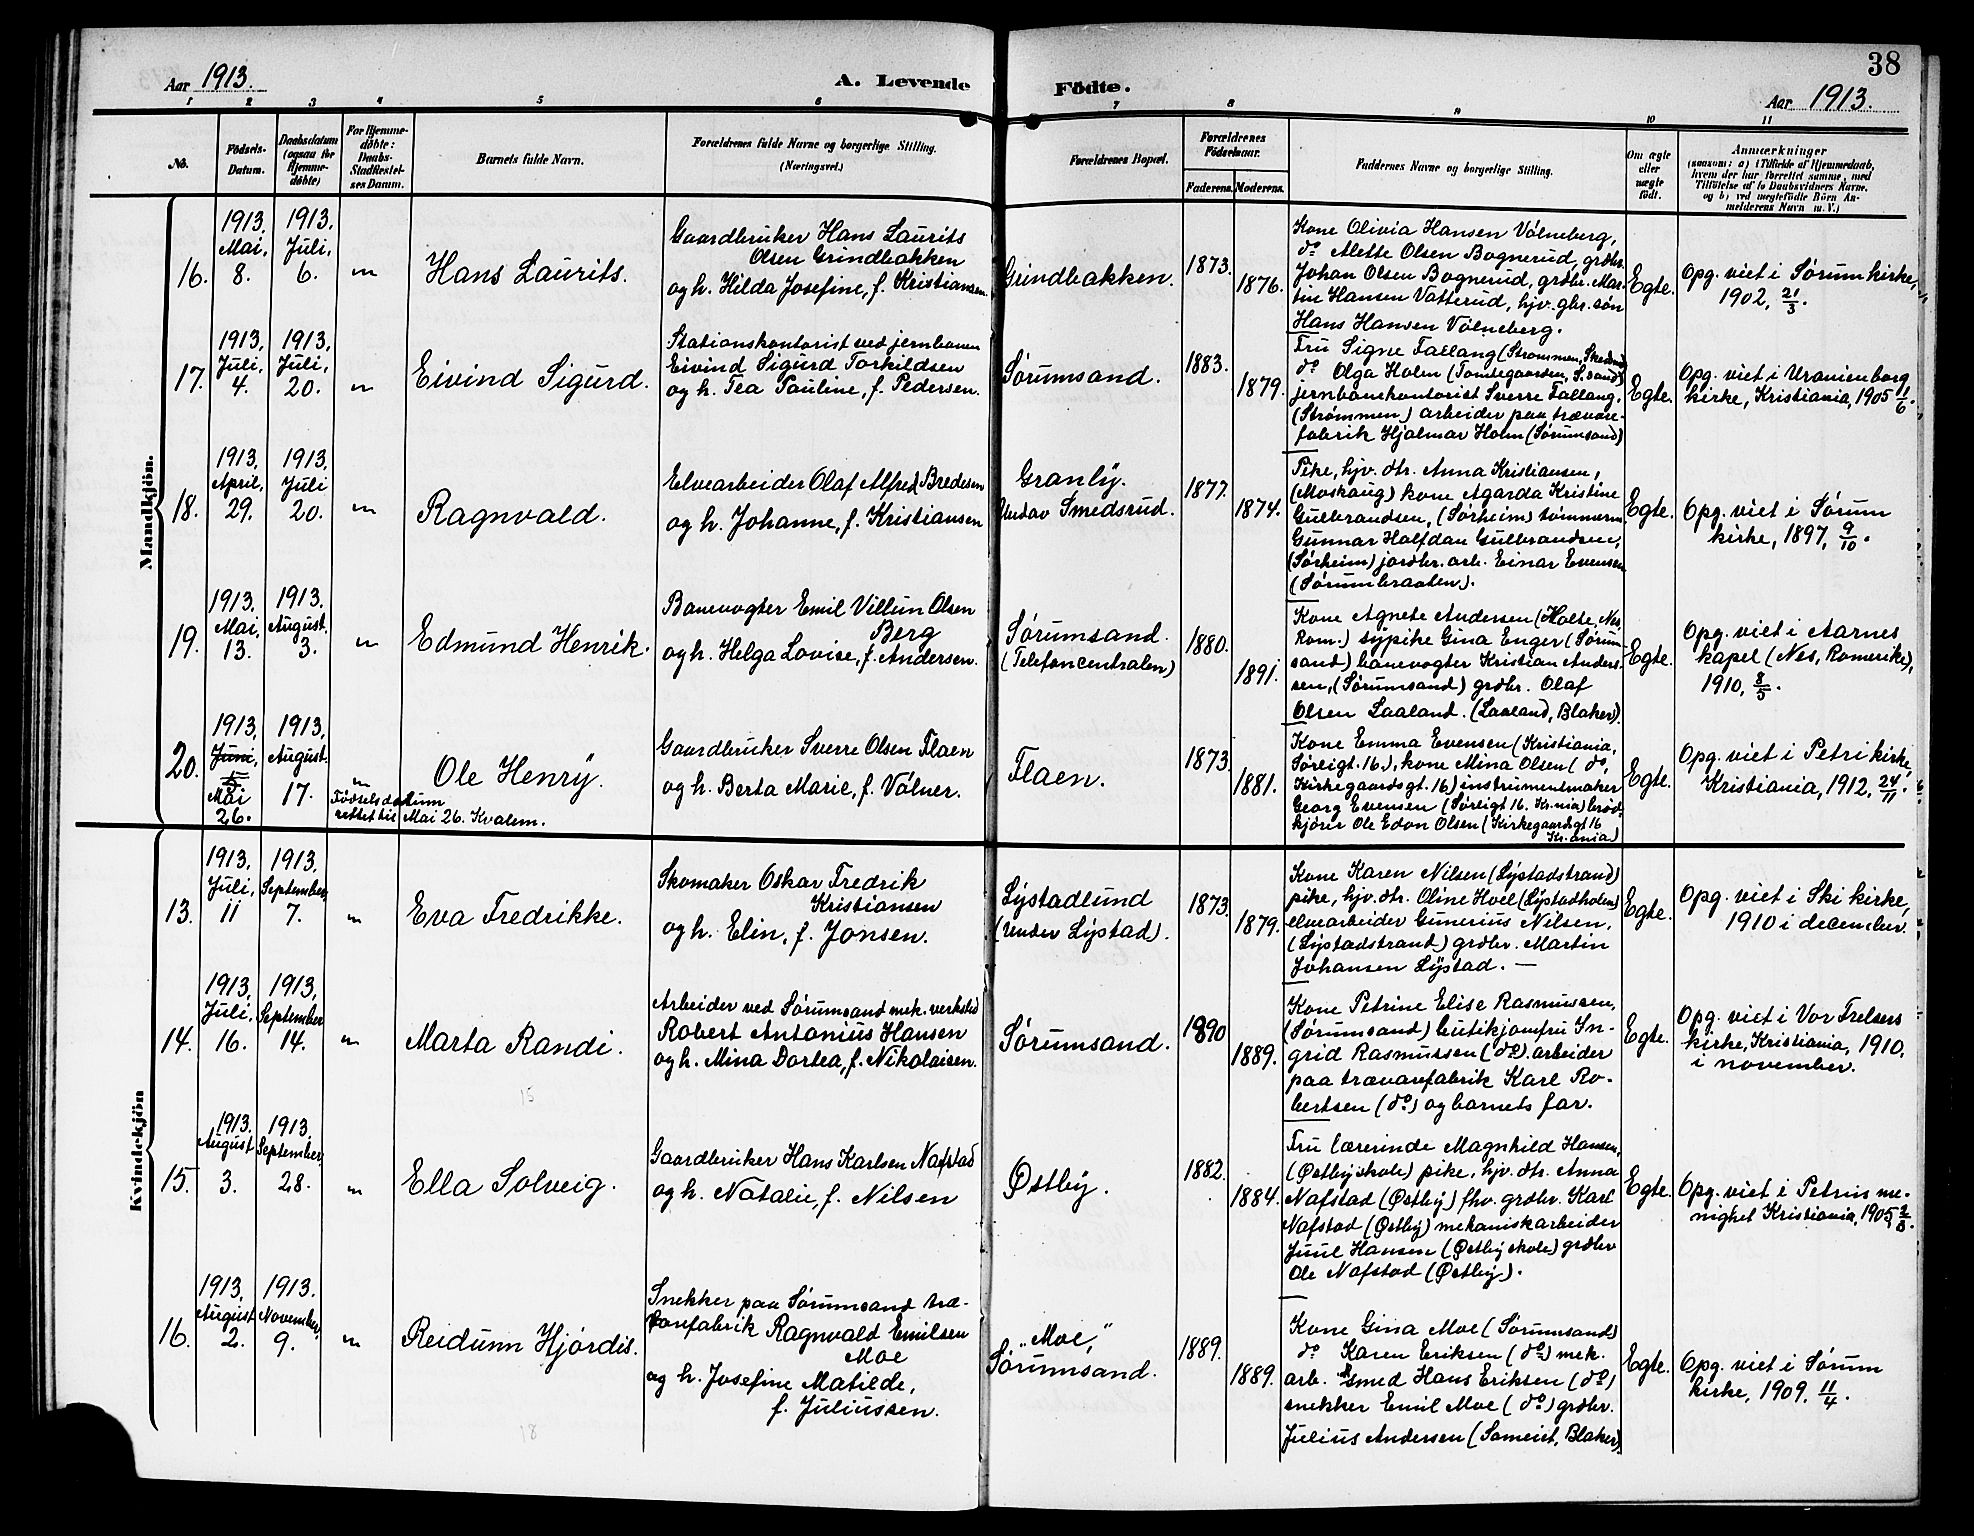 Aar 1913.
A. Levende
Födte.
38
Aar 1913.
1 2 3 4 5 6 7 8 9 10 11
No.
Födsels-
Datum.
Daabsdatum
(ogsaa for
Hjemme-
döbte)
For Hjemme-
döbte:
Daabs-
Stadfæstel-
ses Datum.
Barnets fulde Navn.
Forældrenes fulde Navne og borgerlige Stilling.
(Næringsvei.)
Forældrenes Bopæl.
Forældrenes
Födselsaar.
Faderens. Moderens.
Faddernes Navne og borgerlige Stilling.
Om ægte
eller
uægte
födt.
Anmærkninger
(saasom: a) i Tilfælde af Hjemmedaab,
hvem der har forrettet samme, med
Tilföielse af to Daabsvidners Navne,
og b) ved uægtefödte Börn An-
melderens Navn m. V.)
Mandkjön.
16.
1913.
Mai,
8.
1913.
Juli,
6.
"
Hans Laurits.
Gaardbruker Hans Laurits
Olsen Grindbakken
og h. Hilda Josefine, f. Kristiansen.
Grindbakken.
1873.
1876.
Kone Olivia Hansen Vølneberg,
do Mette Olsen Bognerud, grdbr.
Johan Olsen Bognerud, grdbr. Mar-
tin Hansen Vatterud, hjv. gbr. søn
Hans Hansen Vølneberg.
Egte.
Opg. viet i Sørum kirke,
1902, 21/3.
17.
1913.
Juli,
4.
1913.
Juli,
20.
"
Eivind Sigurd.
Stationskontorist ved jernbanen
Eivind Sigurd Torkildsen
og h. Tea Pauline, f. Pedersen.
Sørumsand.
1883.
1879.
Fru Signe Fallang (Strømmen, Skedsmo)
do Olga Holm (Tomtegaarden, S.sand)
jernbanekontorist Sverre Fallang,
(Strømmen) arbeider paa trævare-
fabrik Hjalmar Holm (Sørumsand)
Egte.
Opg. viet i Uranienborg
kirke, Kristiania, 1905 11/6.
18.
1913.
April,
29.
1913.
Juli
20.
"
Ragnvald.
Elvearbeider Olaf Alfred Bredesen
og h. Johanne, f. Kristiansen
Granly.
Undav Smedsrud.
1877.
1874.
Pike, hjv. dtr. Anna Kristiansen,
(Moskaug) kone Agarda Kristine
Gulbrandsen, (Sørheim) tømmerm.
Gunnar Halfdan Gulbrandsen,
(Sørheim) jordbr. arb. Einar Evensen
(Sørumbraaten).
Egte.
Opg. viet i Sørum
kirke, 1897, 9/10.
19.
1913.
Mai,
13.
1913.
August.
3.
"
Edmund Henrik.
Banevogter Emil Villun Olsen
Berg
og h. Helga Lovise, f. Andersen.
Sørumsand.
(Telefoncentralen)
1880.
1891.
Kone Agnete Andersen (Holte, Nes,
Rom.) sypike Gina Enger (Sørum-
sand) banevogter Kristian Anders-
sen, (Sørumsand) grdbr. Olaf
Olsen Laaland. (Laaland, Blaker).
Egte.
Opg. viet i Aarnes
kapel (Nes, Romerike),
1910, 8/5.
20.
1913.
Juni,
5
Mai
26.
1913.
August.
17.
"
Fødselsdatum
rettet til Mai 26. Kvalem.
Ole Henry.
Gaardbruker Sverre Olsen Flaen
og h. Berta Marie, f. Vølner.
Flaen.
1873.
1881.
Kone Emma Evensen (Kristiania,
Sørligt. 16), kone Mina Olsen (do,
Kirkegaardsgt. 16) instrumentmaker
Georg Evensen (Sørligt 16. Kr.nia) brød-
kjører Ole Edon Olsen (Kirkegaardsgt 16
Kr.ania)
Egte.
Opg. viet i Petri kirke,
Kristiania, 1912, 24/11.
Kvindekjön
13.
1913.
Juli,
11
1913.
September,
7.
"
Eva Fredrikke.
Skomaker Oskar Fredrik
Kristiansen
og h. Elin, f. Jonsen.
Lystadlund
(under Lystad).
1873.
1879.
Kone Karen Nilsen (Lystadstrand)
pike, hjv. dtr. Oline Hoel (Lystadholen)
elvearbeider Gunerius Nilsen,
(Lystadstrand) grdbr. Martin
Johansen Lystad. —
Egte.
Opg. viet i Ski kirke,
1910 i december.
14.
1913.
Juli,
16.
1913.
September
14.
"
Marta Randi.
15
Arbeider ved Sørumsand mek. verksted
Robert Antonius Hansen
og h. Mina Dortea, f. Nikolaisen.
Sørumsand.
1890
1889.
Kone Petrine Elise Rasmussen,
(Sørumsand) butikjomfru In-
grid Rasmussen (do) arbeider
paa trævarefabrik Karl Ro-
bertsen (do) og barnets far.
Egte.
Opg. viet i Vor Frelsers
kirke, Kristiania, 1910,
i november.
15.
1913.
August
3.
1913.
September,
28.
"
Ella Solveig.
Gaardbruker Hans Karlsen Nafstad
og h. Natalie, f. Nilsen
Østby.
1882.
1884.
Fru lærerinde Magnhild Hansen,
(Østby skole) pike, hjv. dtr. Anna
Nafstad (Østby) fhv. grdbr. Karl
Nafstad (Østby) mekaniskarbeider
Juul Hansen (Østby skole) grdbr
Ole Nafstad (Østby).
Egte.
Opg. viet i Petrus me-
nighet Kristiania, 1905
16.
1913.
August
2.
1913.
November,
9.
"
Reidunn Hjørdis.
18
Snekker paa Sørumsand træ-
varefabrik Ragnvald Emilsen
Moe
og h. Josefine Matilde,
f. Juliussen.
"Moe,"
Sørumsand.
1889.
1889.
Kone Gina Moe (Sørumsand)
do Karen Eriksen (do) mek.
arb. smed Hans Eriksen (do)
snekker Emil Moe (do) grdbr.
Julius Andersen (Someiet, Blaker).
Egte.
Opg. viet i Sørum
kirke, 1909, 11/4.